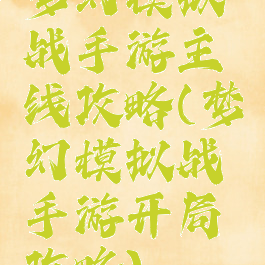 梦幻模拟
战手游主
线攻略(梦
幻模拟战
手游开局
攻略)